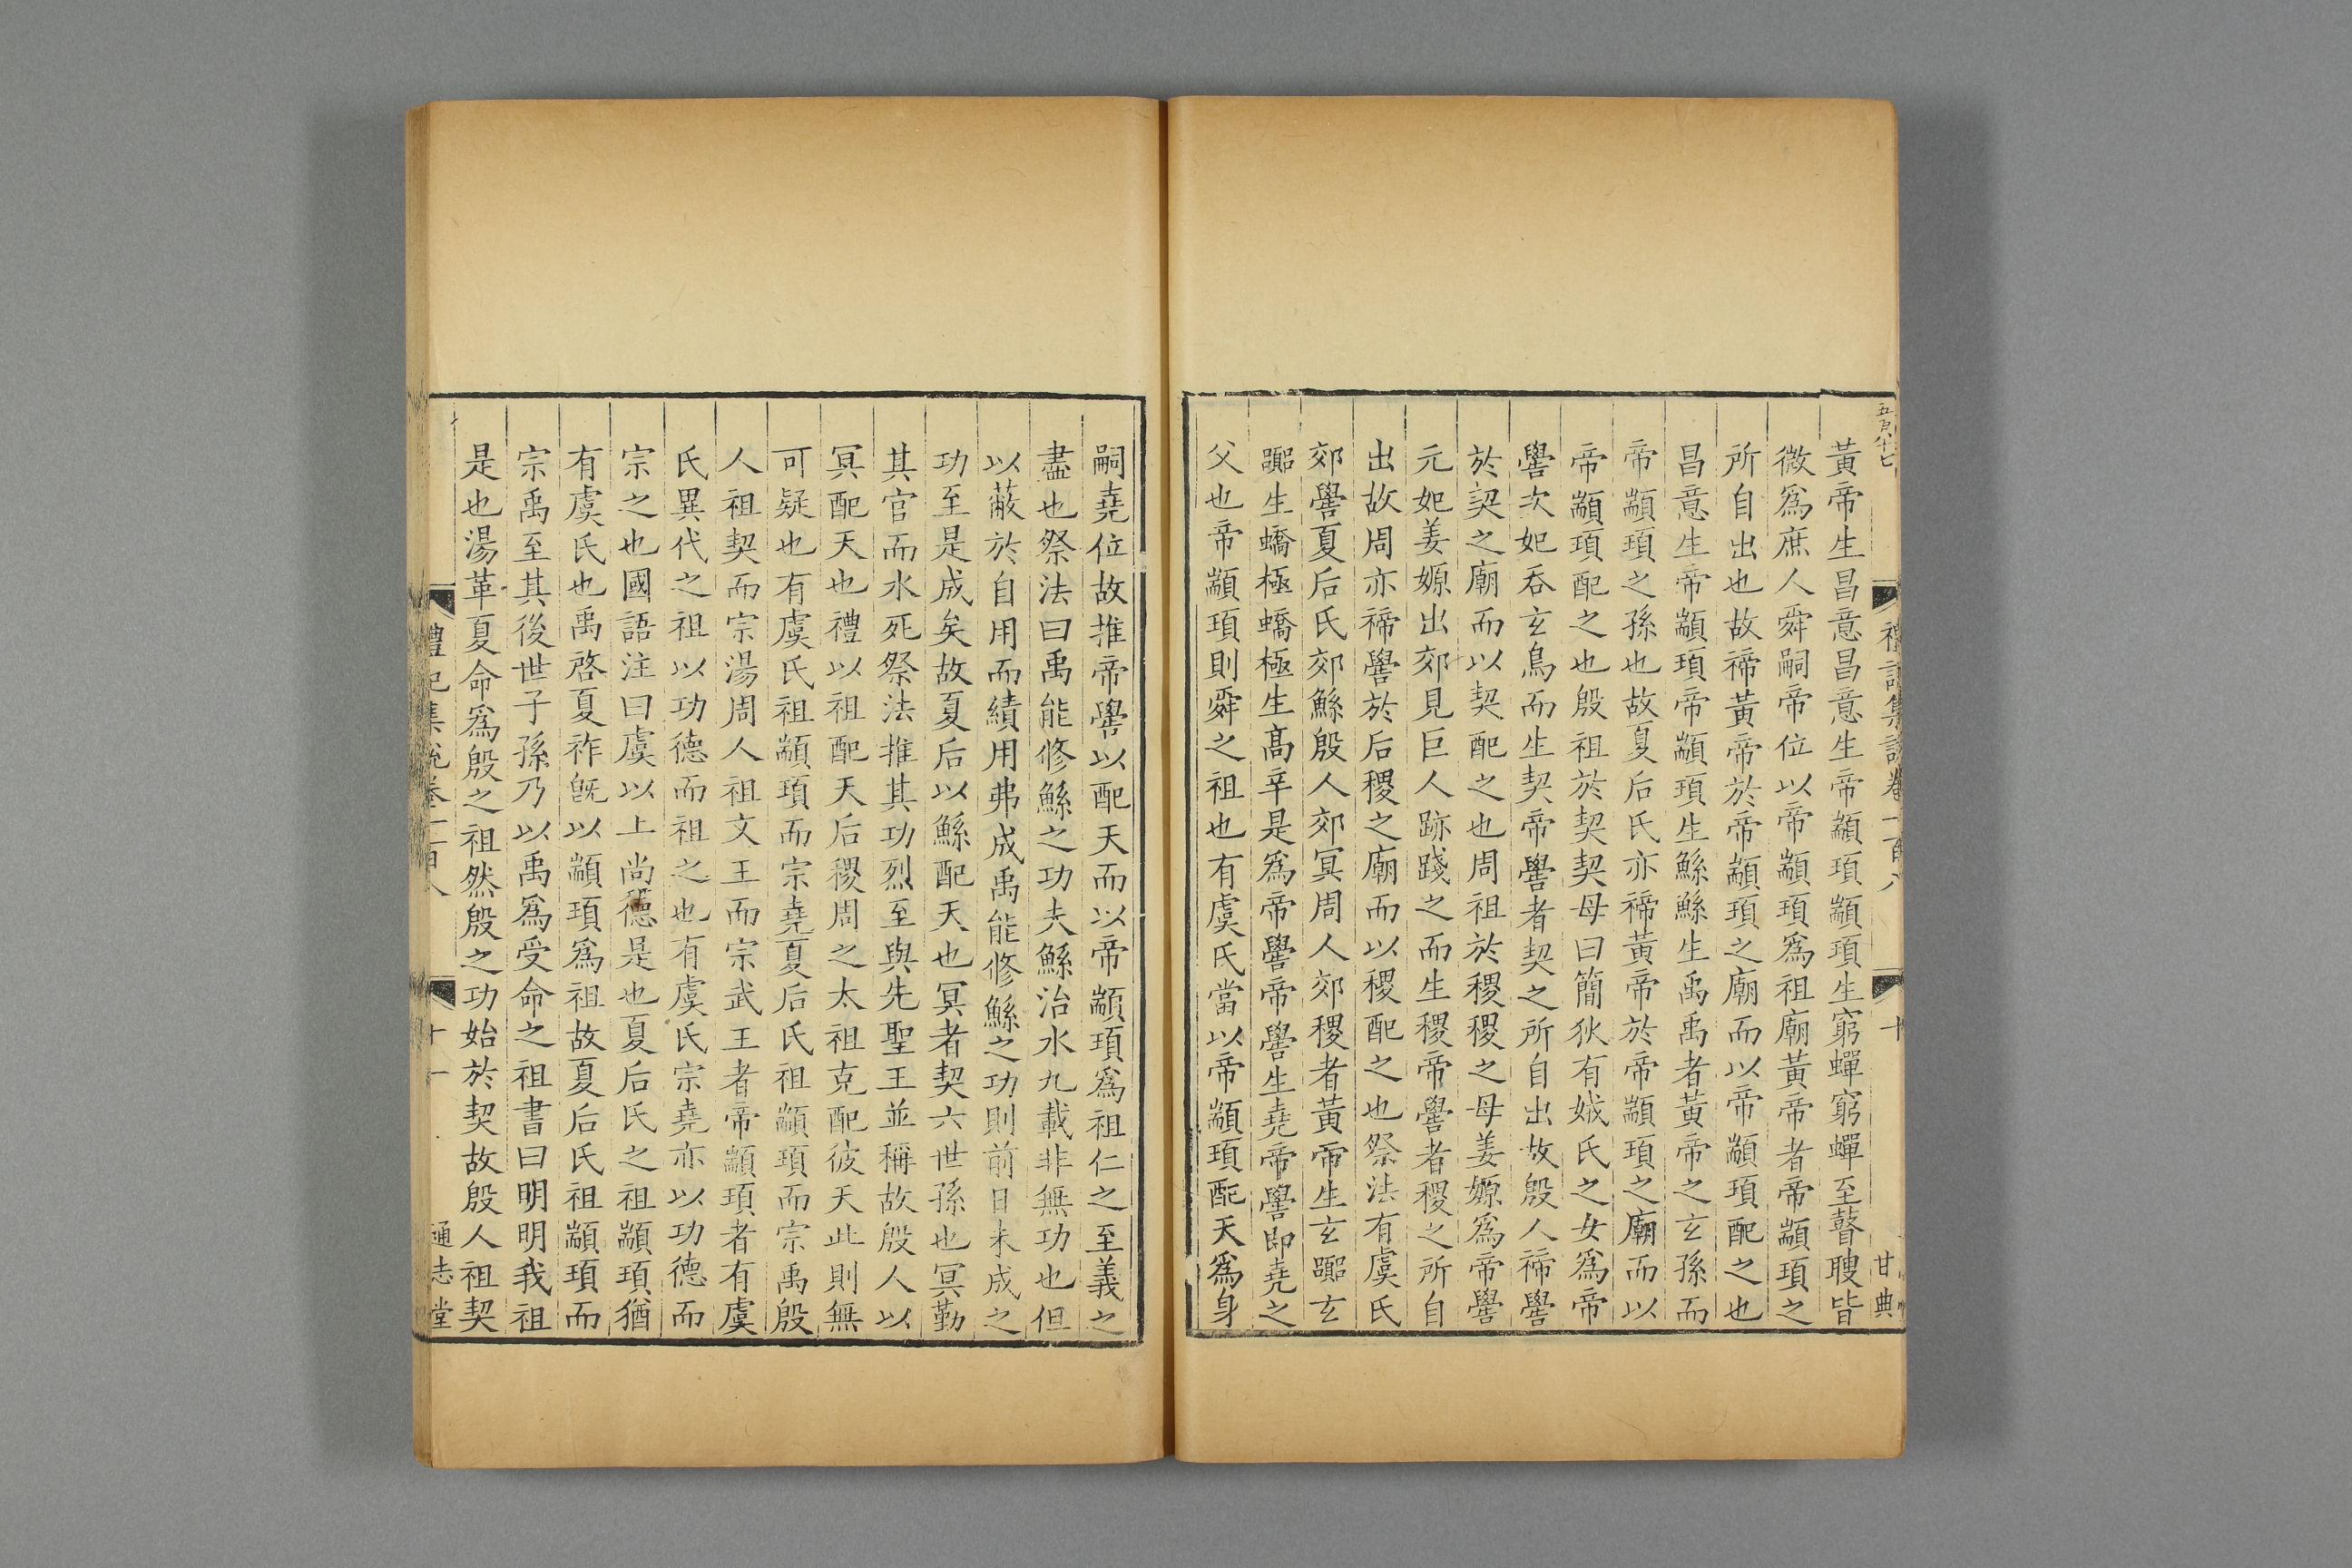 五百十七
禮記集說卷一百八
十
甘典
黃帝生昌意昌意生帝顓頊顓頊生窮蟬窮蟬至瞽瞍皆
微爲庶人舜嗣帝位以帝顓頊爲祖廟黃帝者帝顓頊之
所自出也故禘黃帝於帝顓頊之廟而以帝顓頊配之也
昌意生帝顓頊帝顓頊生鯀鯀生禹禹者黃帝之玄孫而
帝顓頊之孫也故夏后氏亦禘黃帝於帝顓頊之廟而以
帝顓頊配之也殷祖於契契母曰簡狄有娀氏之女爲帝
嚳次妃吞玄鳥而生契帝嚳者契之所自出故殷人禘嚳
於契之廟而以契配之也周祖於稷稷之母姜嫄爲帝嚳
元妃姜嫄出郊見巨人跡踐之而生稷帝嚳者稷之所自
出故周亦禘嚳於后稷之廟而以稷配之也祭法有虞氏
郊嚳夏后氏郊鯀殷人郊冥周人郊稷者黃帝生玄嚻玄
嚻生蟜極蟜極生高辛是爲帝嚳帝嚳生堯帝嚳即堯之
父也帝顓頊則舜之祖也有虞氏當以帝顓頊配天爲身
嗣堯位故推帝嚳以配天而以帝顓頊爲祖仁之至義之
盡也祭法曰禹能修鯀之功夫鯀治水九載非無功也但
以蔽於自用而績用弗成禹能修鯀之功則前日未成之
功至是成矣故夏后以鯀配天也冥者契六世孫也冥勤
其官而水死祭法推其功烈至與先聖王並稱故殷人以
冥配天也禮以祖配天后稷周之太祖克配彼天此則無
可疑也有虞氏祖顓頊而宗堯夏后氏祖顓頊而宗禹殷
人祖契而宗湯周人祖文王而宗武王者帝顓頊者有虞
氏異代之祖以功德而祖之也有虞氏宗堯亦以功德而
宗之也國語注曰虞以上尚德是也夏后氏之祖顓頊猶
有虞氏也禹啓夏祚旣以顓頊爲祖故夏后氏祖顓頊而
宗禹至其後世子孫乃以禹爲受命之祖書曰明明我祖
是也湯革夏命爲殷之祖然殷之功始於契故殷人祖契
禮記集說卷一百八
十一
通志堂